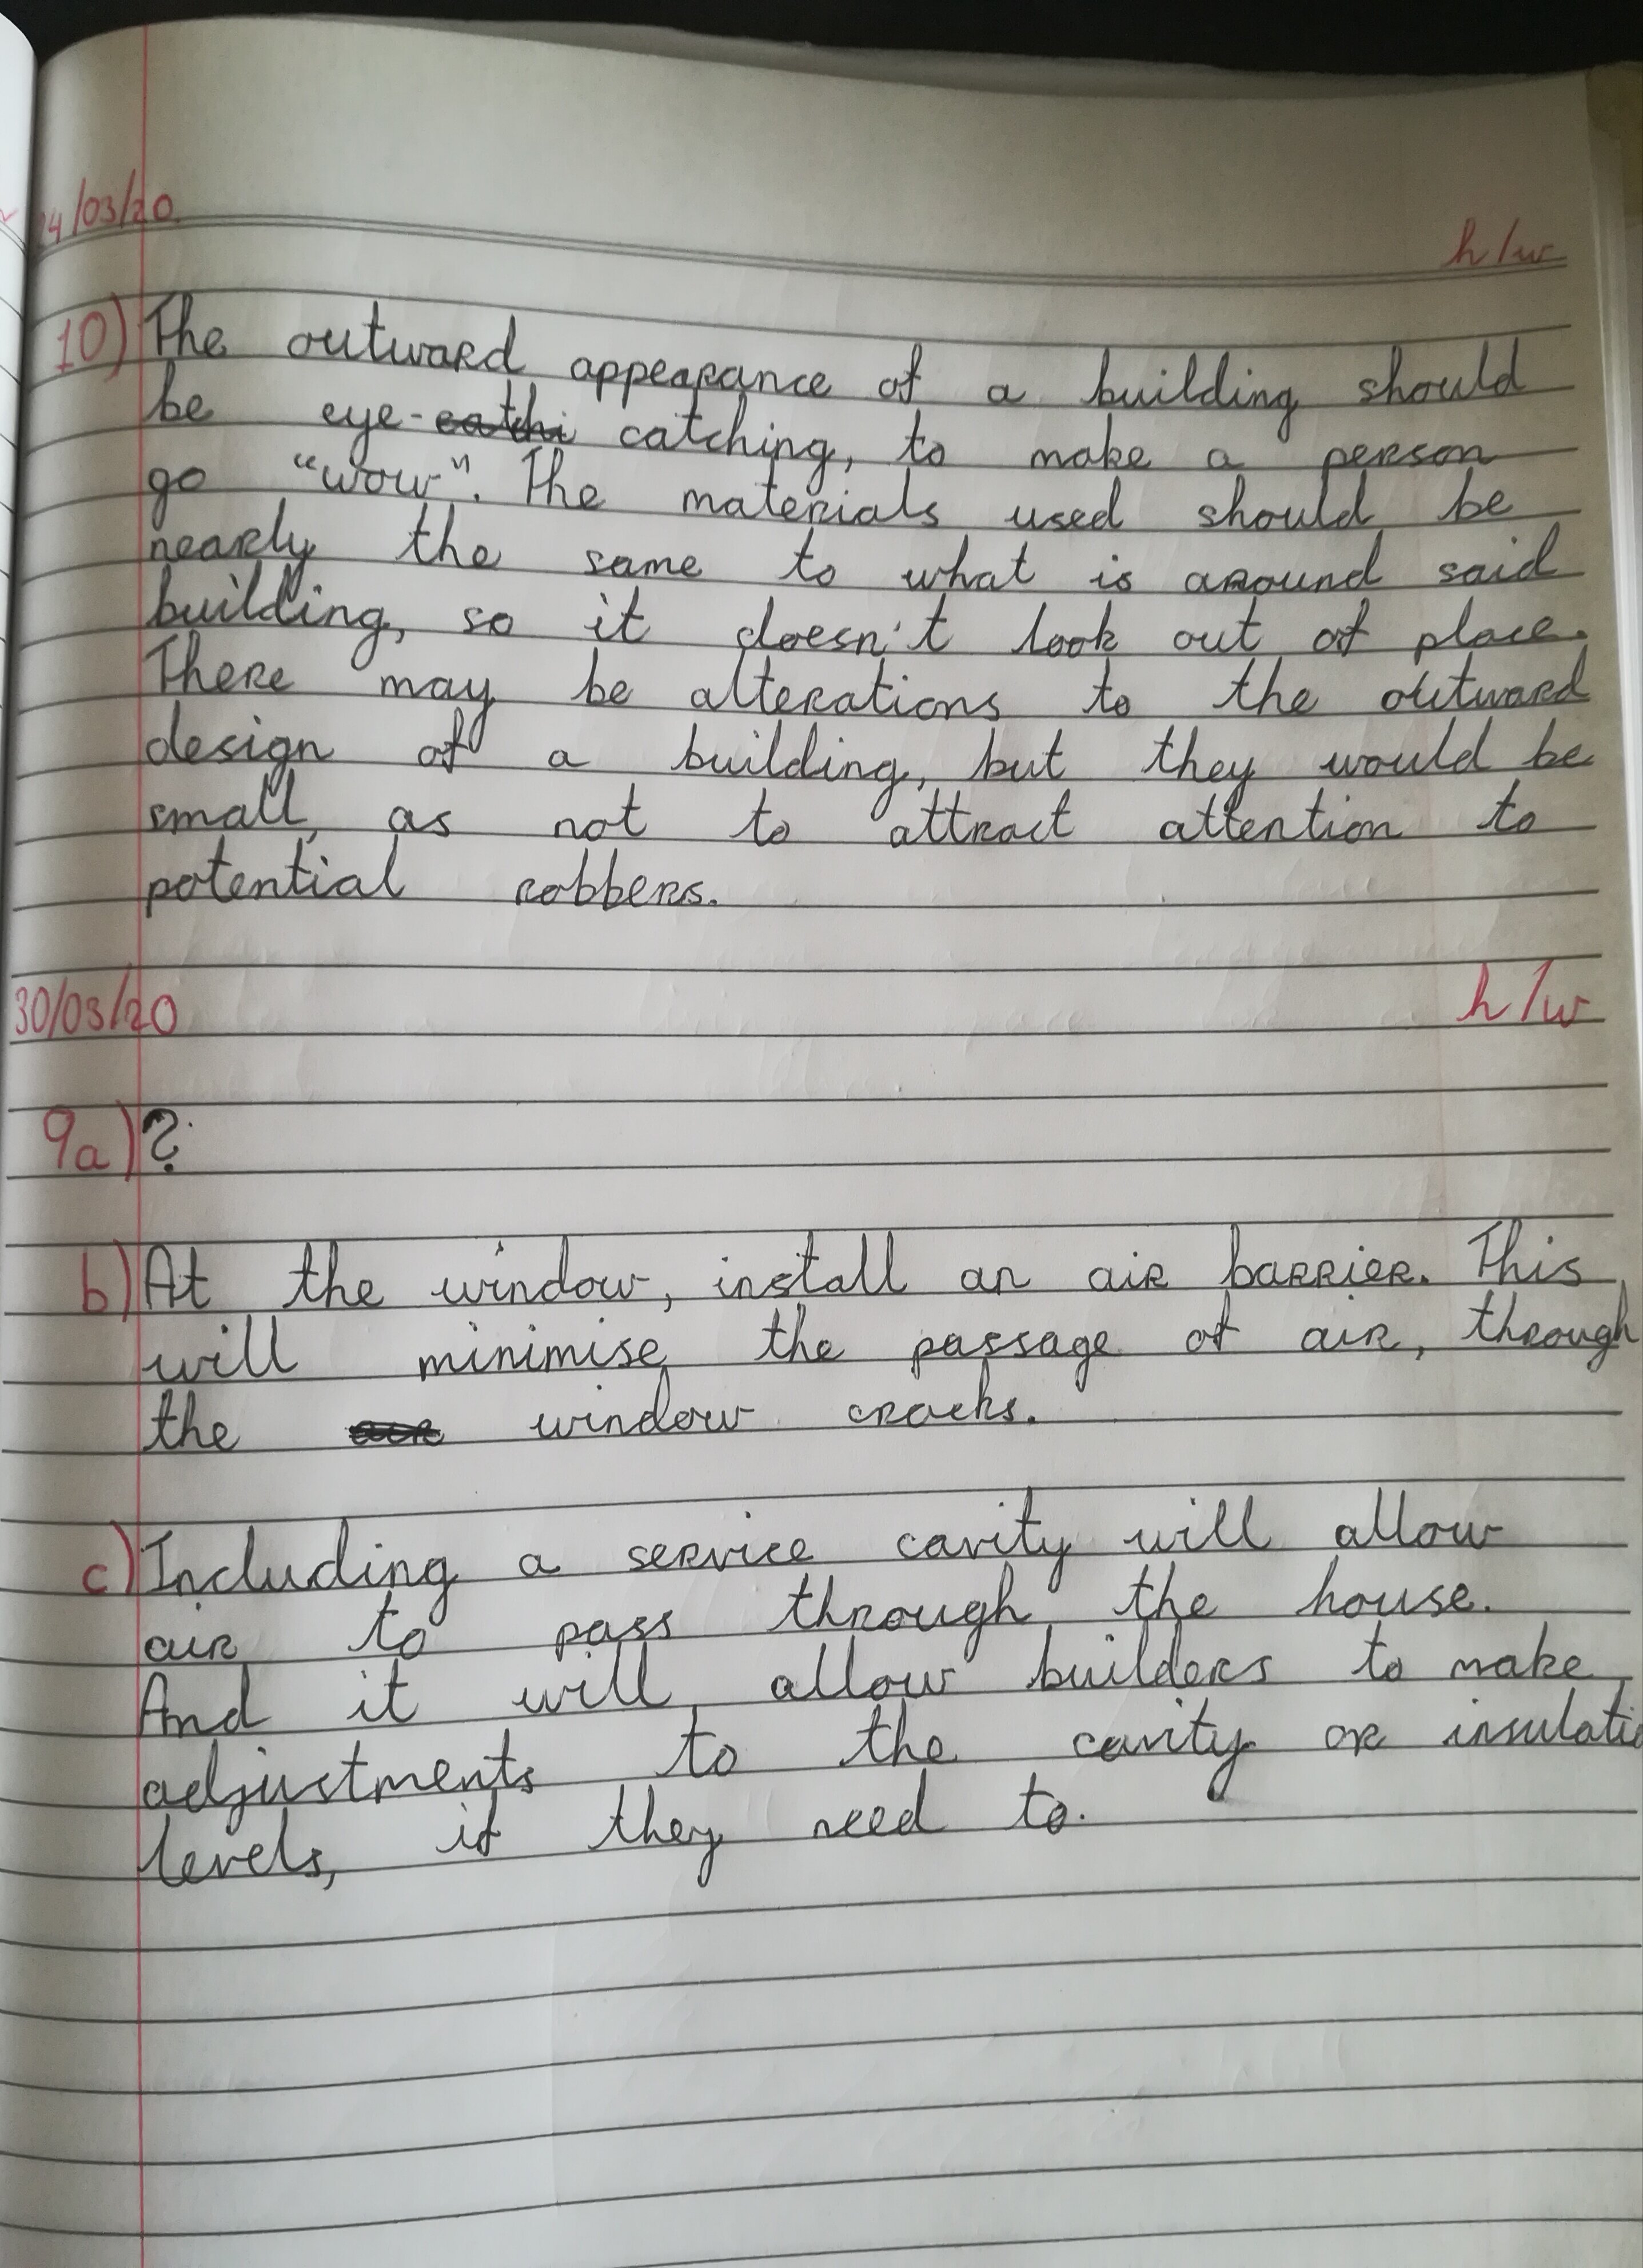 24/03/20
h/w
10) The outward appearance of a building should
be eye-catchi catching, to make a person
go "wow". The materials used should be
nearly the same to what is around said
building, so it doesn't look out of place.
There may be alterations to the outward
design of a building, but they would be
small, as not to attract attention to
potential robbers.
30/03/20 h/w
9a) ?
b) At the window, install an air barrier. This
will minimise the passage of air, through
the window cracks.
c) Including a service cavity will allow
air to pass through the house.
And it will allow builders to make
adjustments to the cavity or insulatio
levels, if they need to.